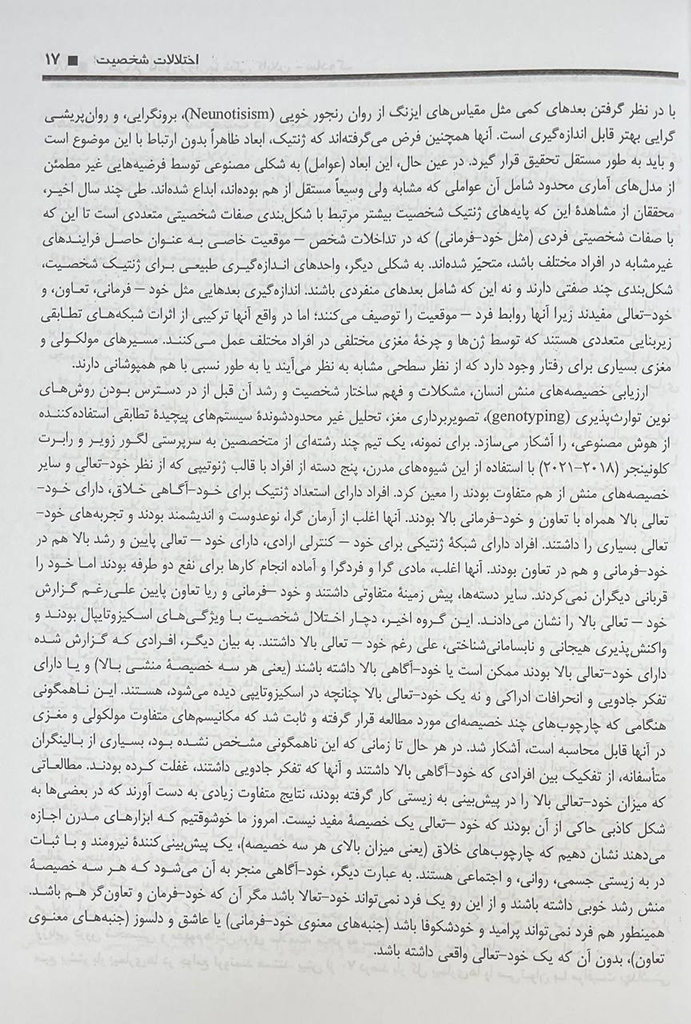 اختلالات شخصیت ■ ۱۷
با در نظر گرفتن بعدهای کمی مثل مقیاس‌های ایزنگ از روان رنجور خویی (Neunotisism)، برونگرایی، و روان‌پریشی
گرایی بهتر قابل اندازه‌گیری است. آنها همچنین فرض می‌گرفته‌اند که ژنتیک، ابعاد ظاهراً بدون ارتباط با این موضوع است
و باید به طور مستقل تحقیق قرار گیرد. در عین حال، این ابعاد (عوامل) به شکلی مصنوعی توسط فرضیه‌هایی غیر مطمئن
از مدل‌های آماری محدود شامل آن عواملی که مشابه ولی وسیعاً مستقل از هم بوده‌اند، ابداع شده‌اند. طی چند سال اخیر،
محققان از مشاهدهٔ این که پایه‌های ژنتیک شخصیت بیشتر مرتبط با شکل‌بندی صفات شخصیتی متعددی است تا این که
با صفات شخصیتی فردی (مثل خود-فرمانی) که در تداخلات شخص – موقعیت خاصی به عنوان حاصل فرایندهای
غیرمشابه در افراد مختلف باشد، متحیّر شده‌اند. به شکلی دیگر، واحدهای اندازه‌گیری طبیعی برای ژنتیک شخصیت،
شکل‌بندی چند صفتی دارند و نه این که شامل بعدهای منفردی باشند. اندازه‌گیری بعدهایی مثل خود – فرمانی، تعاون، و
خود-تعالی مفیدند زیرا آنها روابط فرد – موقعیت را توصیف می‌کنند؛ اما در واقع آنها ترکیبی از اثرات شبکه‌های تطابقی
زیربنایی متعددی هستند که توسط ژن‌ها و چرخهٔ مغزی مختلفی در افراد مختلف عمل می‌کنند. مسیرهای مولکولی و
مغزی بسیاری برای رفتار وجود دارد که از نظر سطحی مشابه به نظر می‌آیند یا به طور نسبی با هم همپوشانی دارند.
ارزیابی خصیصه‌های منش انسان، مشکلات و فهم ساختار شخصیت و رشد آن قبل از در دسترس بودن روش‌های
نوین توارث‌پذیری (genotyping)، تصویربرداری مغز، تحلیل غیر محدودشوندهٔ سیستم‌های پیچیدهٔ تطابقی استفاده‌کننده
از هوش مصنوعی، را آشکار می‌سازد. برای نمونه، یک تیم چند رشته‌ای از متخصصین به سرپرستی لگور زویر و رابرت
کلونینجر (۲۰۱۸-۲۰۲۱) با استفاده از این شیوه‌های مدرن، پنج دسته از افراد با قالب ژنوتیپی که از نظر خود-تعالی و سایر
خصیصه‌های منش از هم متفاوت بودند را معین کرد. افراد دارای استعداد ژنتیک برای خود-آگاهی خلاق، دارای خود-
تعالی بالا همراه با تعاون و خود-فرمانی بالا بودند. آنها اغلب از آرمان گرا، نوعدوست و اندیشمند بودند و تجربه‌های خود-
تعالی بسیاری را داشتند. افراد دارای شبکهٔ ژنتیکی برای خود – کنترلی ارادی، دارای خود – تعالی پایین و رشد بالا هم در
خود-فرمانی و هم در تعاون بودند. آنها اغلب، مادی گرا و فردگرا و آماده انجام کارها برای نفع دو طرفه بودند اما خود را
قربانی دیگران نمی‌کردند. سایر دسته‌ها، پیش زمینهٔ متفاوتی داشتند و خود –فرمانی و ریا تعاون پایین علی‌رغم گزارش
خود – تعالی بالا را نشان می‌دادند. این گروه اخیر، دچار اختلال شخصیت با ویژگی‌های اسکیزوتایپال بودند و
واکنش‌پذیری هیجانی و نابسامانی‌شناختی، علی رغم خود – تعالی بالا داشتند. به بیان دیگر، افرادی که گزارش شده
دارای خود-تعالی بالا بودند ممکن است یا خود-آگاهی بالا داشته باشند (یعنی هر سه خصیصهٔ منشی بالا) و یا دارای
تفکر جادویی و انحرافات ادراکی و نه یک خود-تعالی بالا چنانچه در اسکیزوتایپی دیده می‌شود، هستند. این ناهمگونی
هنگامی که چارچوب‌های چند خصیصه‌ای مورد مطالعه قرار گرفته و ثابت شد که مکانیسم‌های متفاوت مولکولی و مغزی
در آنها قابل محاسبه است، آشکار شد. در هر حال تا زمانی که این ناهمگونی مشخص نشده بود، بسیاری از بالینگران
متأسفانه، از تفکیک بین افرادی که خود-آگاهی بالا داشتند و آنها که تفکر جادویی داشتند، غفلت کرده بودند. مطالعاتی
که میزان خود-تعالی بالا را در پیش‌بینی به زیستی کار گرفته بودند، نتایج متفاوت زیادی به دست آورند که در بعضی‌ها به
شکل کاذبی حاکی از آن بودند که خود –تعالی یک خصیصهٔ مفید نیست. امروز ما خوشوقتیم که ابزارهای مدرن اجازه
می‌دهند نشان دهیم که چارچوب‌های خلاق (یعنی میزان بالای هر سه خصیصه)، یک پیش‌بینی‌کنندهٔ نیرومند و با ثبات
در به زیستی جسمی، روانی، و اجتماعی هستند. به عبارت دیگر، خود-آگاهی منجر به آن می‌شود که هر سه خصیصهٔ
منش رشد خوبی داشته باشند و از این رو یک فرد نمی‌تواند خود-تعالا باشد مگر آن که خود-فرمان و تعاون‌گر هم باشد.
همینطور هم فرد نمی‌تواند پرامید و خودشکوفا باشد (جنبه‌های معنوی خود-فرمانی) یا عاشق و دلسوز (جنبه‌های معنوی
تعاون)، بدون آن که یک خود-تعالی واقعی داشته باشد.